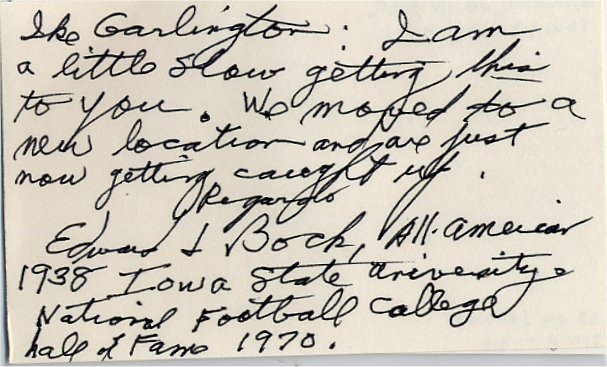 Ike Garlington: I am
a little slow getting this
to you. We moved to a
new location and are just
now getting caught up.
Regards
Edward J Bock, All-American
1938 Iowa State University
National Football College
hall of Fame 1970.